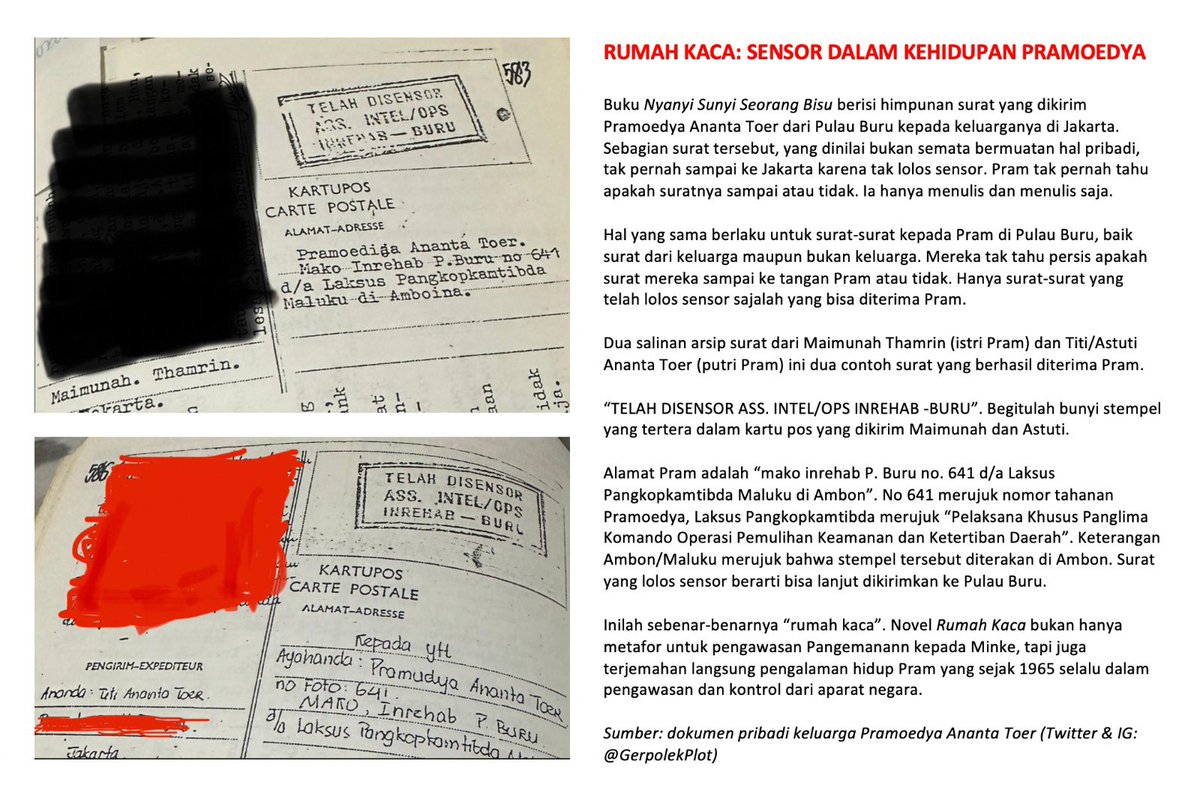 583
TELAH DISENSOR
ASS. INTEL/OPS
INREHAB — BURU
KARTUPOS
CARTE POSTALE
ALAMAT—ADRESSE
Pramoediga Ananta Toer.
Mako Inrehab P.Buru no 641
d/a Laksus Pangkopkamtibda
Maluku di Amboina.
Maimunah. Thamrin.
586
TELAH DISENSOR
ASS. INTEL/OPS
INREHAB — BURU
KARTUPOS
CARTE POSTALE
ALAMAT—ADRESSE
Kepada yth
Ayahanda: Pramudya Ananta Toer
no Foto: 641.
MAKO, Inrehab P. Buru
d/a Laksus Pangkopkamtibda
PENGIRIM-EXPEDITEUR
Ananda: Titi Ananta Toer.
Jakarta
RUMAH KACA: SENSOR DALAM KEHIDUPAN PRAMOEDYA
Buku Nyanyi Sunyi Seorang Bisu berisi himpunan surat yang dikirim
Pramoedya Ananta Toer dari Pulau Buru kepada keluarganya di Jakarta.
Sebagian surat tersebut, yang dinilai bukan semata bermuatan hal pribadi,
tak pernah sampai ke Jakarta karena tak lolos sensor. Pram tak pernah tahu
apakah suratnya sampai atau tidak. Ia hanya menulis dan menulis saja.
Hal yang sama berlaku untuk surat-surat kepada Pram di Pulau Buru, baik
surat dari keluarga maupun bukan keluarga. Mereka tak tahu persis apakah
surat mereka sampai ke tangan Pram atau tidak. Hanya surat-surat yang
telah lolos sensor sajalah yang bisa diterima Pram.
Dua salinan arsip surat dari Maimunah Thamrin (istri Pram) dan Titi/Astuti
Ananta Toer (putri Pram) ini dua contoh surat yang berhasil diterima Pram.
“TELAH DISENSOR ASS. INTEL/OPS INREHAB -BURU”. Begitulah bunyi stempel
yang tertera dalam kartu pos yang dikirim Maimunah dan Astuti.
Alamat Pram adalah “mako inrehab P. Buru no. 641 d/a Laksus
Pangkopkamtibda Maluku di Ambon”. No 641 merujuk nomor tahanan
Pramoedya, Laksus Pangkopkamtibda merujuk “Pelaksana Khusus Panglima
Komando Operasi Pemulihan Keamanan dan Ketertiban Daerah”. Keterangan
Ambon/Maluku merujuk bahwa stempel tersebut diterakan di Ambon. Surat
yang lolos sensor berarti bisa lanjut dikirimkan ke Pulau Buru.
Inilah sebenar-benarnya “rumah kaca”. Novel Rumah Kaca bukan hanya
metafor untuk pengawasan Pangemanann kepada Minke, tapi juga
terjemahan langsung pengalaman hidup Pram yang sejak 1965 selalu dalam
pengawasan dan kontrol dari aparat negara.
Sumber: dokumen pribadi keluarga Pramoedya Ananta Toer (Twitter & IG:
@GerpolekPlot)